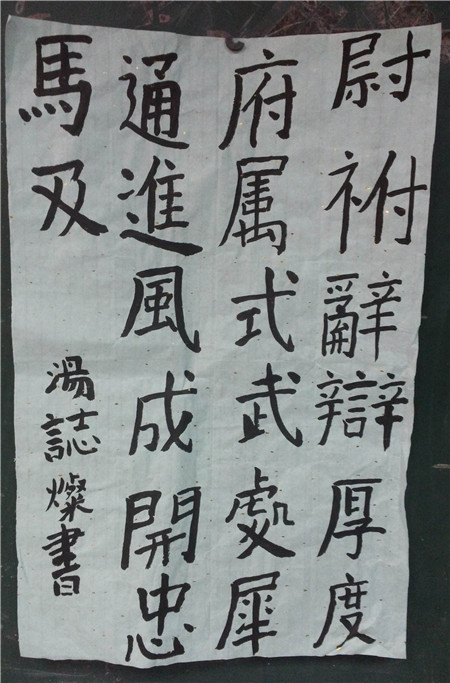 尉祔辭辯厚度
府属式武處犀
通進風成開忠
馬及
湯誌燦書